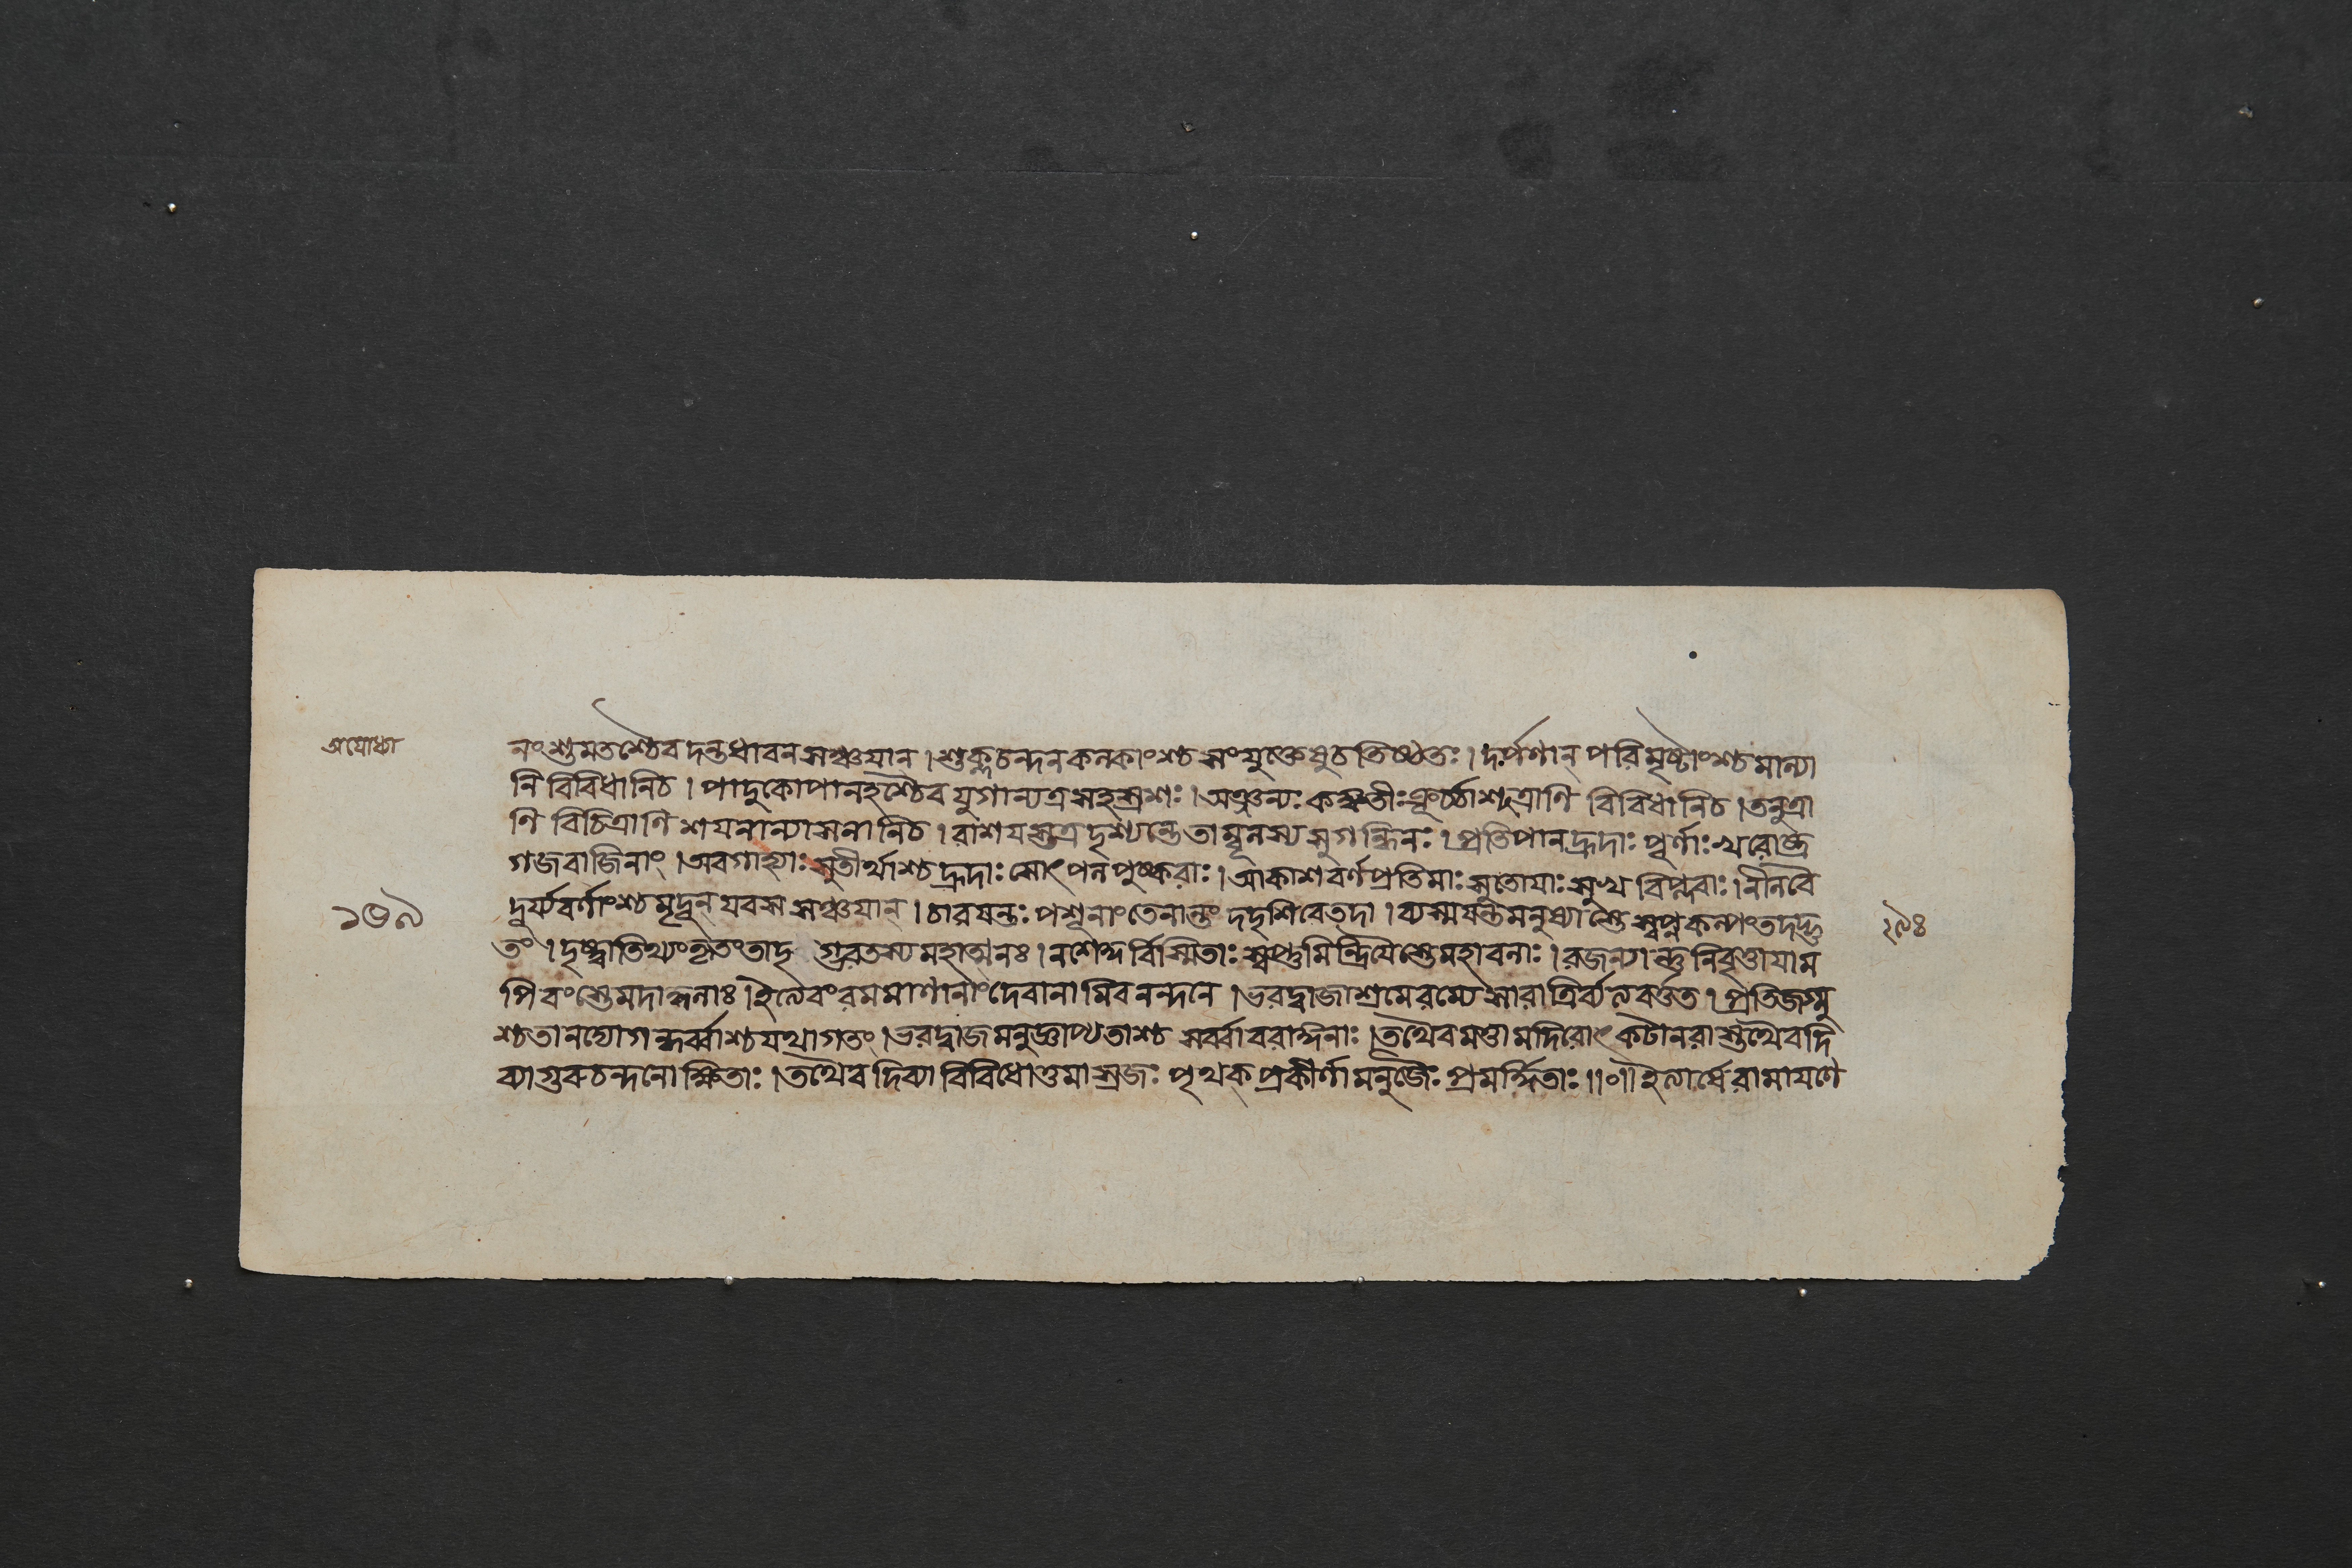 অযোধ্যা
নংশুমতশ্চৈব দন্তধাবন সঞ্চয়ান। শুক্লচন্দন কল্কাংশ্চ সংযুক্তে ষুচতিষ্ঠতঃ। দর্পণান্ পরিমৃষ্টাংশ্চ মাল্যা
নি বিবিধানিচ। পাদুকোপানহশ্চৈব যুগান্যত্র সহস্রশঃ। অঞ্জন্যঃ কঙ্কতীঃ কূর্চ্চাশ্ছত্রাণি বিবিধানিচ। তনুত্রা
ণি বিচিত্রাণি শয়নান্যাসনানিচ। রাশয়স্তত্র দৃশ্যন্তে তাম্বূলস্য সুগন্ধিনঃ। প্রতিপানহ্রদাঃ পূর্ণাঃ খরোষ্ট্র
গজবাজিনাং। অবগাহ্যাঃ সুতীর্থাশ্চ হ্রদাঃ সোৎপলপুষ্করাঃ। আকাশবর্ণপ্রতিমাঃ সুতোয়াঃ সুখ বিপ্লবাঃ। নীলবৈ
দূর্য্যবর্ণাংশ্চ মৃদূন্ যবস সঞ্চয়ান্। চারয়ন্তঃ পশূনাংতেনান্তং দদৃশিরেতদা। ব্যস্ময়ন্তমনুষ্যাস্তে স্বপ্নকল্পং তদদ্ভু
তং। দৃষ্ট্বাতিথ্যংকৃতংতাদৃ গ্ভরতস্য মহাত্মনঃ। নশেকু র্বিস্মিতাঃ স্বপ্তুমিন্দ্রিয়ৈস্তেমহাবলাঃ। রজন্যান্তু নিবৃত্তায়াম
পি বংস্তেমদাকুলাঃ। ইত্যেবংরমমাণানাংদেবানামিব নন্দনে। ভরদ্বাজাশ্রমেরম্যে সারাত্রির্ব্যত্যবর্ত্তত। প্রতিজগ্মু
শ্চতানদ্যোগন্ধর্ব্বাশ্চ যথাগতং। ভরদ্বাজমনুজ্ঞাপ্য তাশ্চ সর্ব্বাবরাঙ্গনাঃ। তথৈবমত্তা মদিরোৎকটানরা স্তথৈবদি
ব্যাগুরুচন্দনোক্ষিতাঃ। তথৈব দিব্যা বিবিধোত্তমা স্রজঃ পৃথক্ প্রকীর্ণা মনুজৈঃ প্রমর্দ্দিতাঃ॥০॥ ইত্যার্ষে রামায়ণে
১৩৯